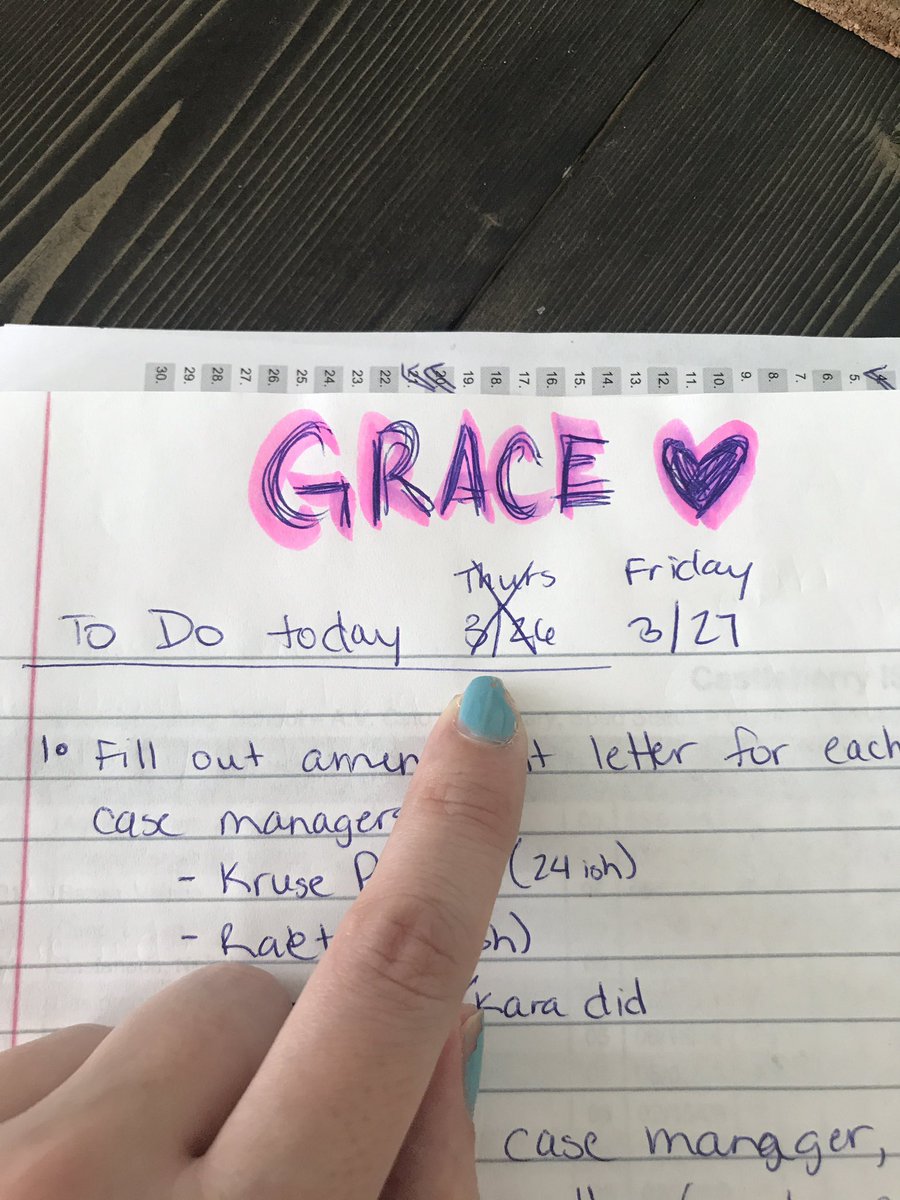 30. 29. 28. 27. 26. 25. 24. 23. 22. 21. 20. 19. 18. 17. 16. 15. 14. 13. 12. 11. 10. 9. 8. 7. 6. 5. 4.
GRACE
Thurs Friday
To Do today 3/26 3/27
1. Fill out letter for each
case managers
- Kruse (24 ioh)
-
Kara did
case manager,